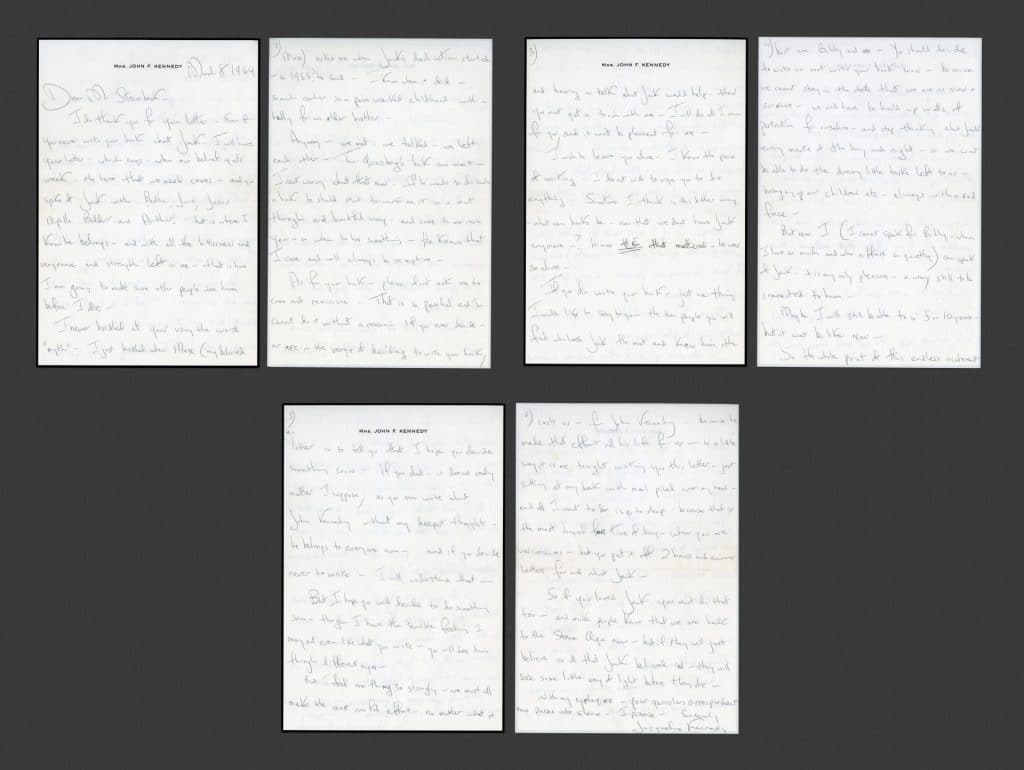 MRS. JOHN F. KENNEDY
March 8 1964
Dear Mr. Steinbeck
I do thank you for your letter - Even if
you never write your book about Jack I will have
your letter - which says - when our belief gets
weak the hero that we need comes - and you
speak of Jack with Buddha, Jove, Jesus
Apollo Balder and Arthur. That is where I
know he belongs - and with all the bitterness and
vengeance and strength left in me - that is how
I am going to make sure other people see him
before I die -
I never bristled at your using the word
"myth" - I just bristled when Max (my beloved
2)
Max) asked me when Jack's dedication started
- in 1955 he said -
much earlier in a poor wracked childhood with
only for an older brother -
Anyway - we met - we talked - we left
each other - book can wait -
I can't worry about that now. If he wants to do such
a book he should start to work on it in a most
thorough and way - and come to me in a
year or so when he has something - He knows that
I care and will always be receptive -
As for your book - please don't ask me to
come and reminisce. That is so painful and I
cannot do it without a reason. If you ever decide -
or are on the verge of deciding to write your book,
3)
MRS. JOHN F. KENNEDY
and hearing us talk about Jack would help - then
you must get in touch with me - I will do all I can
for you and it won't be pleasant for me -
I wish to leave you alone - I know the pain
of writing - I do not wish to urge you to do
anything. Sometimes I think what
what can books be - now that we don't have Jack
anymore -? It was HE that mattered - he was
so alive -
If you do write your book - just one thing
I would like to say to you - the two people you will
find who loved Jack the most and knew him the
4) best are Bobby and me - You should decide
to write or not write your book now - because
we cannot stay in the state that we are in now &
survive - we will have to build up walls of
protection for ourselves - and stop thinking about Jack
every minute of the day and night - or we won't
be able to do the dreary little tasks left to us -
bringing up our children etc - always with a sad
face -
But now I (I cannot speak for Bobby - whom
I love so much and who suffers so quietly) can speak
of Jack - it is my only pleasure - a way still to be
connected to him -
Maybe I will still be able to in 5 or 10 years -
but it won't be like now -
So the whole point of this endless incoherent
5)
MRS. JOHN F. KENNEDY
letter is to tell you that I hope you decide
something soon - If you don't - it doesn't really
matter I suppose, as you can write about
John Kennedy without my deepest thoughts -
he belongs to everyone now - and if you decide
never to write - I will understand that -
But I hope you will decide to do something
soon - though I have the terrible feeling I
may not even like what you write - you will see him
through different eyes -
But I feel one thing so strongly - we must all
make the most awful effort - no matter what it
6) costs us - for John Kennedy because he
made that effort all his life for us - in a little
way it is me tonight writing you this letter - just
sitting at my desk with mail piled over my head -
and all I want to do is go to sleep - because that is
the most time of day - when you are
unconscious - but you put it off 2 hours and answer
letters for and about Jack -
So if you loved Jack you must do that
too - and make people know that we are back
to the Stone Age now - but if they will just
believe in all that Jack believed in - they will
see some little ray of light before they die -
With my apologies - your garrulous correspondent
- I promise - Sincerely
Jacqueline Kennedy